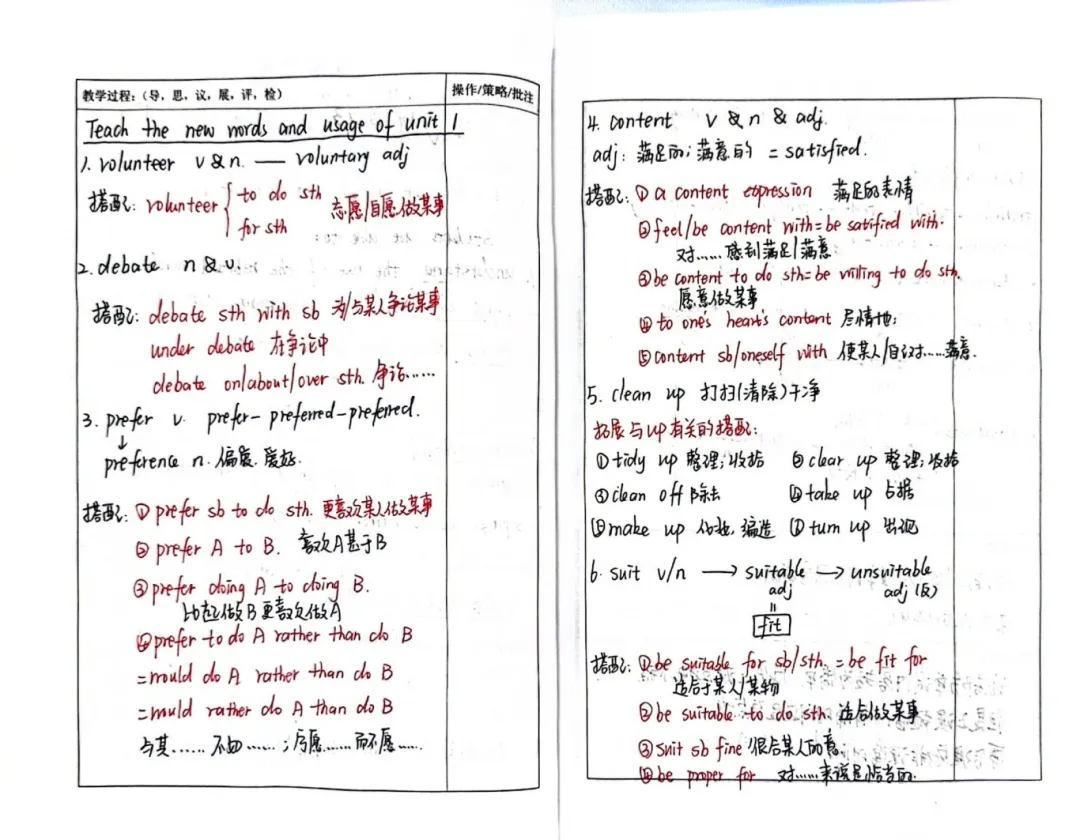 教学过程:(导,思,议,展,评,检)
操作/策略/批注
Teach the new words and usage of unit 1
1. volunteer v & n. — voluntary adj
搭配: volunteer { to do sth 志愿/自愿做某事
for sth
2. debate n & v.
搭配: debate sth with sb 为/与某人争论某事
under debate 在争论中
debate on/about/over sth. 争论……
3. prefer v. prefer- preferred-preferred.
↓
preference n. 偏爱. 爱好.
搭配: ① prefer sb to do sth. 更喜欢某人做某事
② prefer A to B. 喜欢A甚于B
③ prefer doing A to doing B.
比起做B更喜欢做A
④ prefer to do A rather than do B
=would do A rather than do B
=would rather do A than do B
与其…… 不如……;宁愿……而不愿……
4. content v & n & adj.
adj: 满足的;满意的 = satisfied.
搭配: ① a content expression 满足的表情
② feel/be content with=be satified with.
对……感到满足/满意
③ be content to do sth=be willing to do sth.
愿意做某事
④ to one's heart's content 尽情地;
⑤ content sb/oneself with 使某人/自己对……满意.
5. clean up 打扫(清除)干净
拓展与up有关的搭配:
① tidy up 整理;收拾 ② clear up 整理;收拾
③ clean off 除去 ④ take up 占据
⑤ make up 化妆,编造 ⑦ turn up 出现
6. suit v/n → suitable → unsuitable
adj adj (反)
=
fit
搭配: ① be suitable for sb/sth. = be fit for
适合于某人/某物
② be suitable to do sth. 适合做某事
③ suit sb fine 很合某人的意
④ be proper for 对……来说是恰当的.